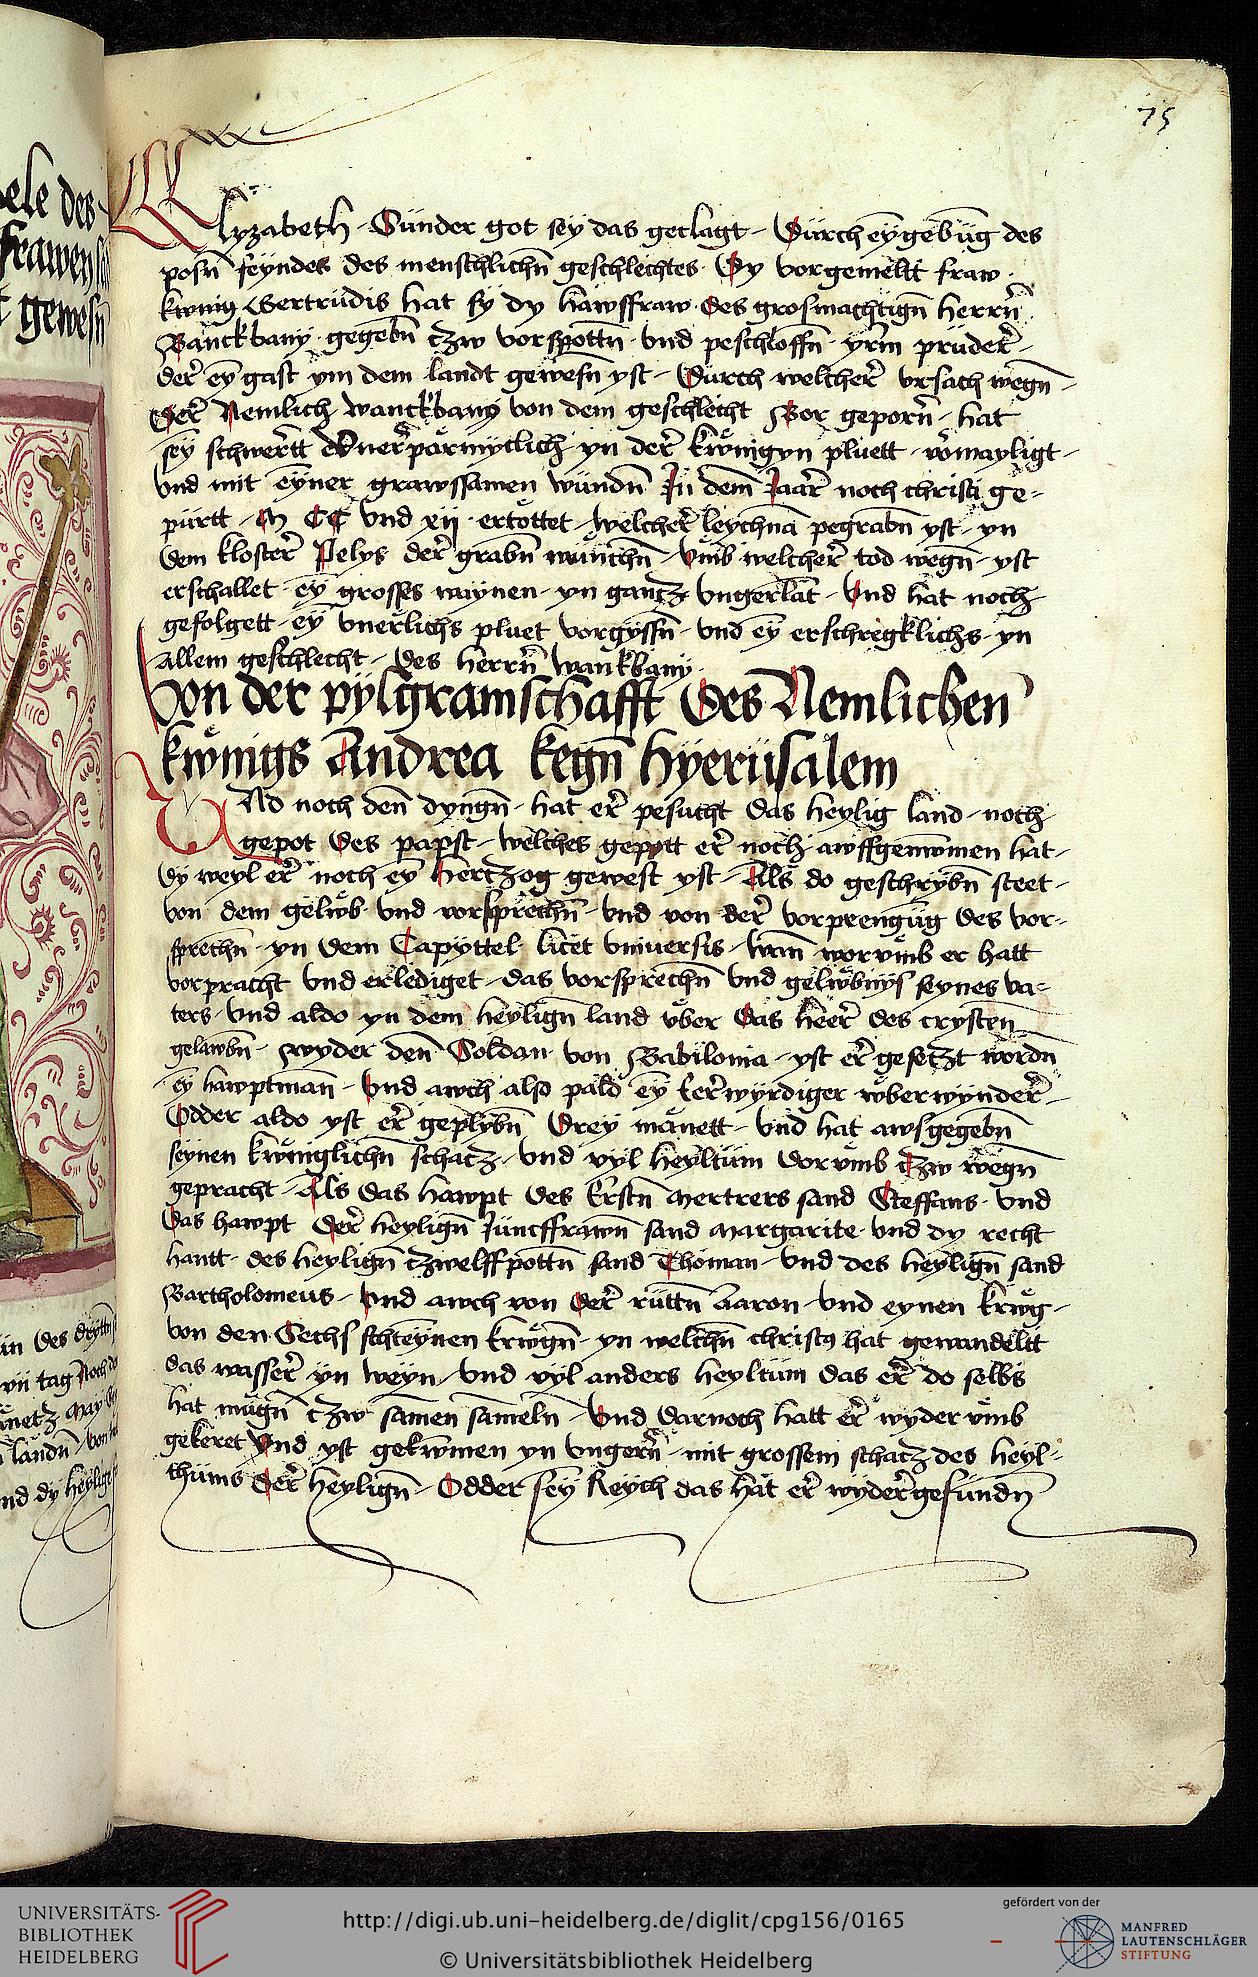 75
Elyzabeth · Sünder got sey das geclagt · Dürch eÿ gebüg des
posn̄ feyndes des menschlichn̄ geschlechtes · Dy vorgemeltt fraw ·
kwnig Gertrudis hat sy dy hawssfraw · des grosmachtign̄ herrn̄ ·
Banckbany · gegebn̄ tzw vorspottn̄ · vnd peschloffn̄ · yrm prüder ·
der eÿ gast ym dem landt gewesn yst · Dürch welcher vrsach wegn̄ ·
Der Nemlich wanckbany von dem geschlecht Bor geporn̄ · hat
seÿ schwertt vnerparmyclich · yn der kwnigyn pluett · vomayligt ·
vnd mit eyner grawssamen wündn̄ Jn dem Jaar noch christi ge-
pürtt · M CC vnd xij · ertottet · welcher leychna pegrabn̄ yst · yn
dem kloster Pelys der grabn̄ mwnchn̄ · vmb welcher tod wegn̄ · yst
erschallet · eÿ grosses waynen · yn gantz vngerlāt · Vnd hat noch
gefolgett · eÿ vnerlichs pluet vorgyssn̄ · vnd eÿ erschregklichs · yn
allem geschlecht · des herrn̄ wankbany ·
Von der pylgramschafft Des Nemlichen
kwnigs Andrea kegn̄ hyerüsalem
Vnd noch den dyngn̄ · hat er pesucht das heylig land · noch
gepot des papst · welches gepott er noch awffgenwmen hat ·
dy weyl er noch eÿ hertzog gewest yst · Als do geschrybn̄ steet ·
von dem gelwb · vnd vorsprechn̄ · vnd von der vorprengūg des vor-
sprechn̄ · yn dem Capyttel licet vniuersis · wan worvmb er hatt
vorpracht vnd erlediget · das vorsprechn̄ vnd gelwbnys seynes va-
ters · vnd aldo yn dem heylign̄ land vber das heer des crysten
gelawbn̄ · zwyder den Soldan von Babilonia · yst er gesetzt wordn̄
eÿ hawptman · Vnd awch also pald eÿ eerwyrdiger wberwynder ·
Odder aldo yst er geplybn̄ Drey manett · vnd hat awsgegebn̄
seynen kwniglichn̄ schacz · vnd vyl heyltüm dorvmb tzw wegn̄
gepracht · Als das hawpt des Erstn̄ mertrers sand Steffans · vnd
das hawpt der heylign̄ Jüncffrawn̄ sand margarite · vnd dy recht
hantt · des heylign̄ tzwelffpottn̄ sand Thoman · vnd des heylign̄ sand
Bartholomeus · Vnd awch von der rüttn̄ Aaron · vnd eynen krwg ·
von den Sechs schteynen krwgn̄ · yn welchn̄ christus hat gewandeltt
das wasser yn weyn · vnd vyl anders heyltüm das er do selbs
hat mügn̄ tzw samen sameln̄ · Vnd darnoch hatt er wyder vmb
gekeret Vnd yst gekwmen yn vngern̄ · mit grossem schacz des heyl-
thüms der heylign̄ · Odder seÿ Reych das hat er wyder gefündn̄
UNIVERSITÄTS-
BIBLIOTHEK
HEIDELBERG
http://digi.ub.uni-heidelberg.de/diglit/cpg156/0165
© Universitätsbibliothek Heidelberg
gefördert von der
MANFRED
LAUTENSCHLÄGER
STIFTUNG